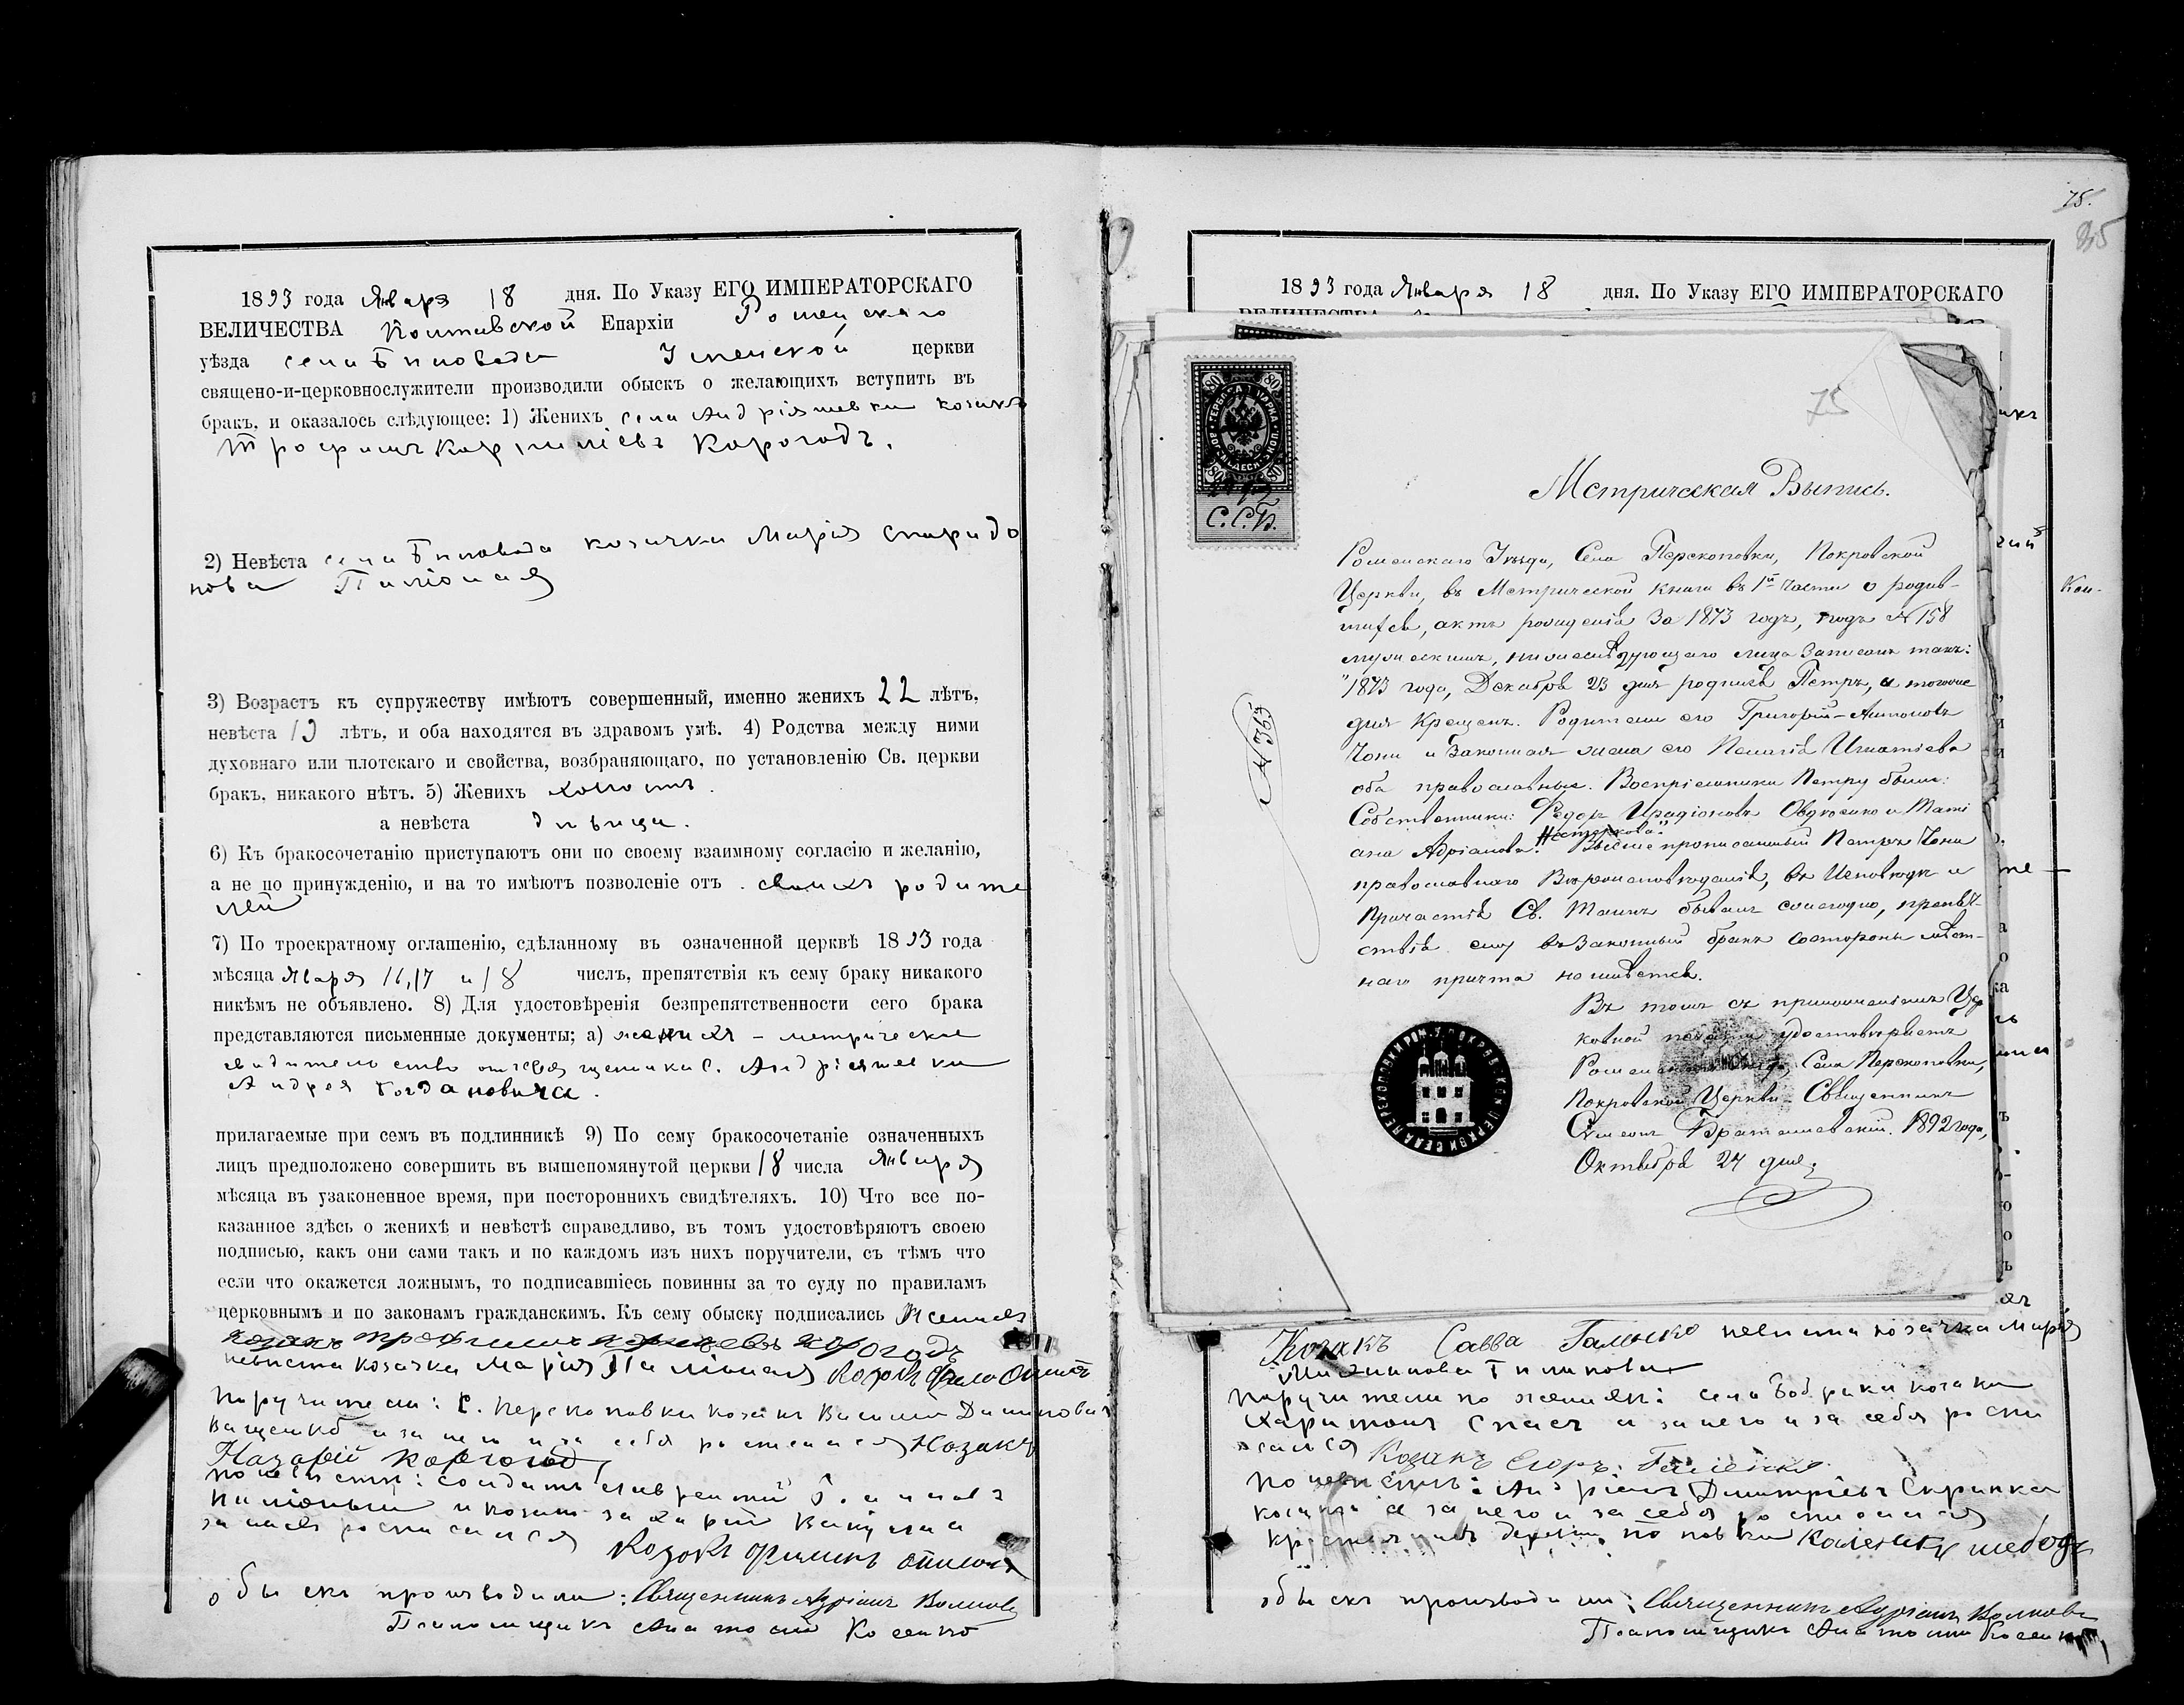 1893 года Января 18 дня. По Указу ЕГО ИМПЕРАТОРСКАГО
ВЕЛИЧЕСТВА Полтавской Епархіи Роменскаго
уѣзда села Біловода Успенской церкви
священо-и-церковнослужители производили обыскъ о желающихъ вступить въ
бракъ, и оказалось слѣдующее: 1) Женихъ села Андріяшевки козакъ
Трофимъ Корніліевъ Корогодъ.
2) Невѣста села Біловода козачка Марія Спиридо
нова
3) Возрастъ къ супружеству имѣютъ совершенный, именно женихъ 22 лѣтъ,
невѣста 19 лѣтъ, и оба находятся въ здравомъ умѣ. 4) Родства между ними
духовнаго или плотскаго и свойства, возбраняющаго, по установленію Св. церкви
бракъ, никакого нѣтъ. 5) Женихъ холостъ.
а невѣста дѣвица.
6) Къ бракосочетанію приступаютъ они по своему взаимному согласію и желанію,
а не по принужденію, и на то имѣютъ позволеніе отъ своихъ родите
лей
7) По троекратному оглашенію, сдѣланному въ означенной церквѣ 1893 года
мѣсяца Января 16, 17 и 18 числъ, препятствія къ сему браку никакого
никѣмъ не объявлено. 8) Для удостовѣренія безпрепятственности сего брака
представляются письменные документы; а) жениха - метрическое
свидительство священника с. Андріяшевки
Андрея Богдановича.
прилагаемые при семъ въ подлинникѣ 9) По сему бракосочетаніе означенныхъ
лицъ предположено совершить въ вышепомянутой церкви 18 числа Января
мѣсяца въ узаконенное время, при постороннихъ свидѣтеляхъ. 10) Что все по-
казанное здѣсь о женихѣ и невѣстѣ справедливо, въ томъ удостовѣряютъ своею
подписью, какъ они сами такъ и по каждомъ изъ нихъ поручители, съ тѣмъ что
если что окажется ложнымъ, то подписавшіесь повинны за то суду по правиламъ
церковнымъ и по законамъ гражданскимъ. Къ сему обыску подписались Женихъ
козакъ Трофимъ Корогодъ
невѣста козачка Марія
поручители: С. Перекоповки козакъ Василій
Ващенко и за него и за себя росписался Козакъ
Назарій Корогод
по невѣсте: солдатъ
и козакъ Захарій
росписался
Козакъ
обыскъ производили: Священникъ Адріанъ Волковъ
Псаломщикъ Анатолій Косенко
75.
85
1893 года Января 18 дня. По Указу ЕГО ИМПЕРАТОРСКАГО
75
ГЕРБОВАЯ МАРКА
80
С.С.Б.
№ 363
Метрическая Выпись.
Роменскаго Уѣзда, Села Перекоповки, Покровской
Церкви, въ Метрической книги въ 1й части о родив-
шихся, актъ рожденія за 1873 годъ, подъ № 158
мужескимъ, нижеслѣдующаго лица записанъ такъ:
"1873 года, Декабря 23 дня родився Петръ, а тогоже
дня Крещенъ. Родители его Григорій Антоновъ
Чони и законная жена его Пелагія Игнатіева
оба православные. Воспріемники Петру были:
Собственники: Федоръ Иродіоновъ Овдіенко и Таті
ана Адріанова Нестеркова". Вышепрописанный Петръ Чони
православнаго Вѣроисповѣданія, въ Исповѣди и
Причастія Св. Таинъ бывалъ ежегодно, препят-
ствія ему въ законный бракъ состороны мѣст-
наго причта не имѣется.
Въ томъ съ приложеніемъ Цер
ковной печати удостовѣряетъ
Роменскаго уѣзда, Села Перекоповки,
Покровской Церкви Священникъ
Симеонъ Братановскій. 1892 года,
Октября 24 дня.
Козакъ Савва Галыско невѣста козачка Марія
поручители по женихѣ: села Бобрики козакъ
Харитонъ Спасъ и за него и за себя роспи
сался Козакъ Егоръ
по невѣстѣ: Андріанъ Димитріевъ Скрипка
козакъ а за него и за себя росписался
обыскъ производили: Священникъ Адріанъ Волковъ
Псаломщикъ Анатолій Косенко